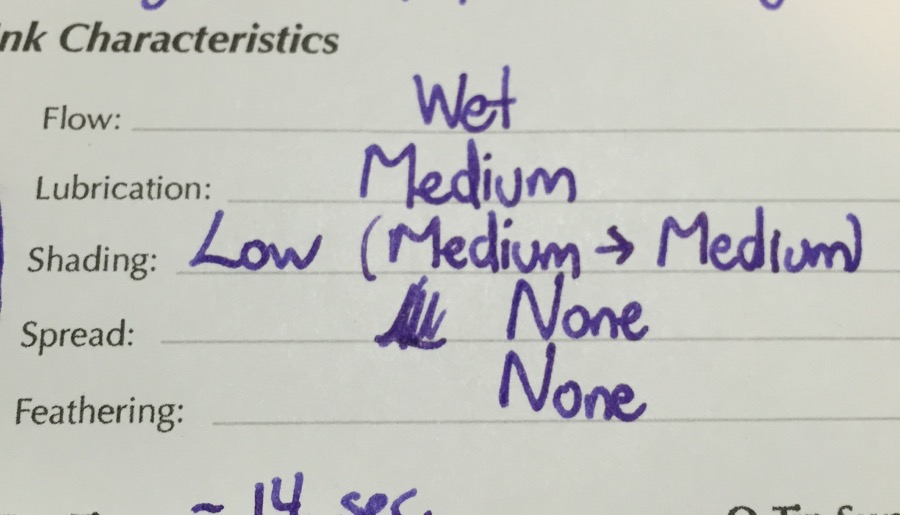 Ink Characteristics
Flow: Wet
Lubrication: Medium
Shading: Low (Medium → Medium)
Spread: None
Feathering: None
~ 14 sec.